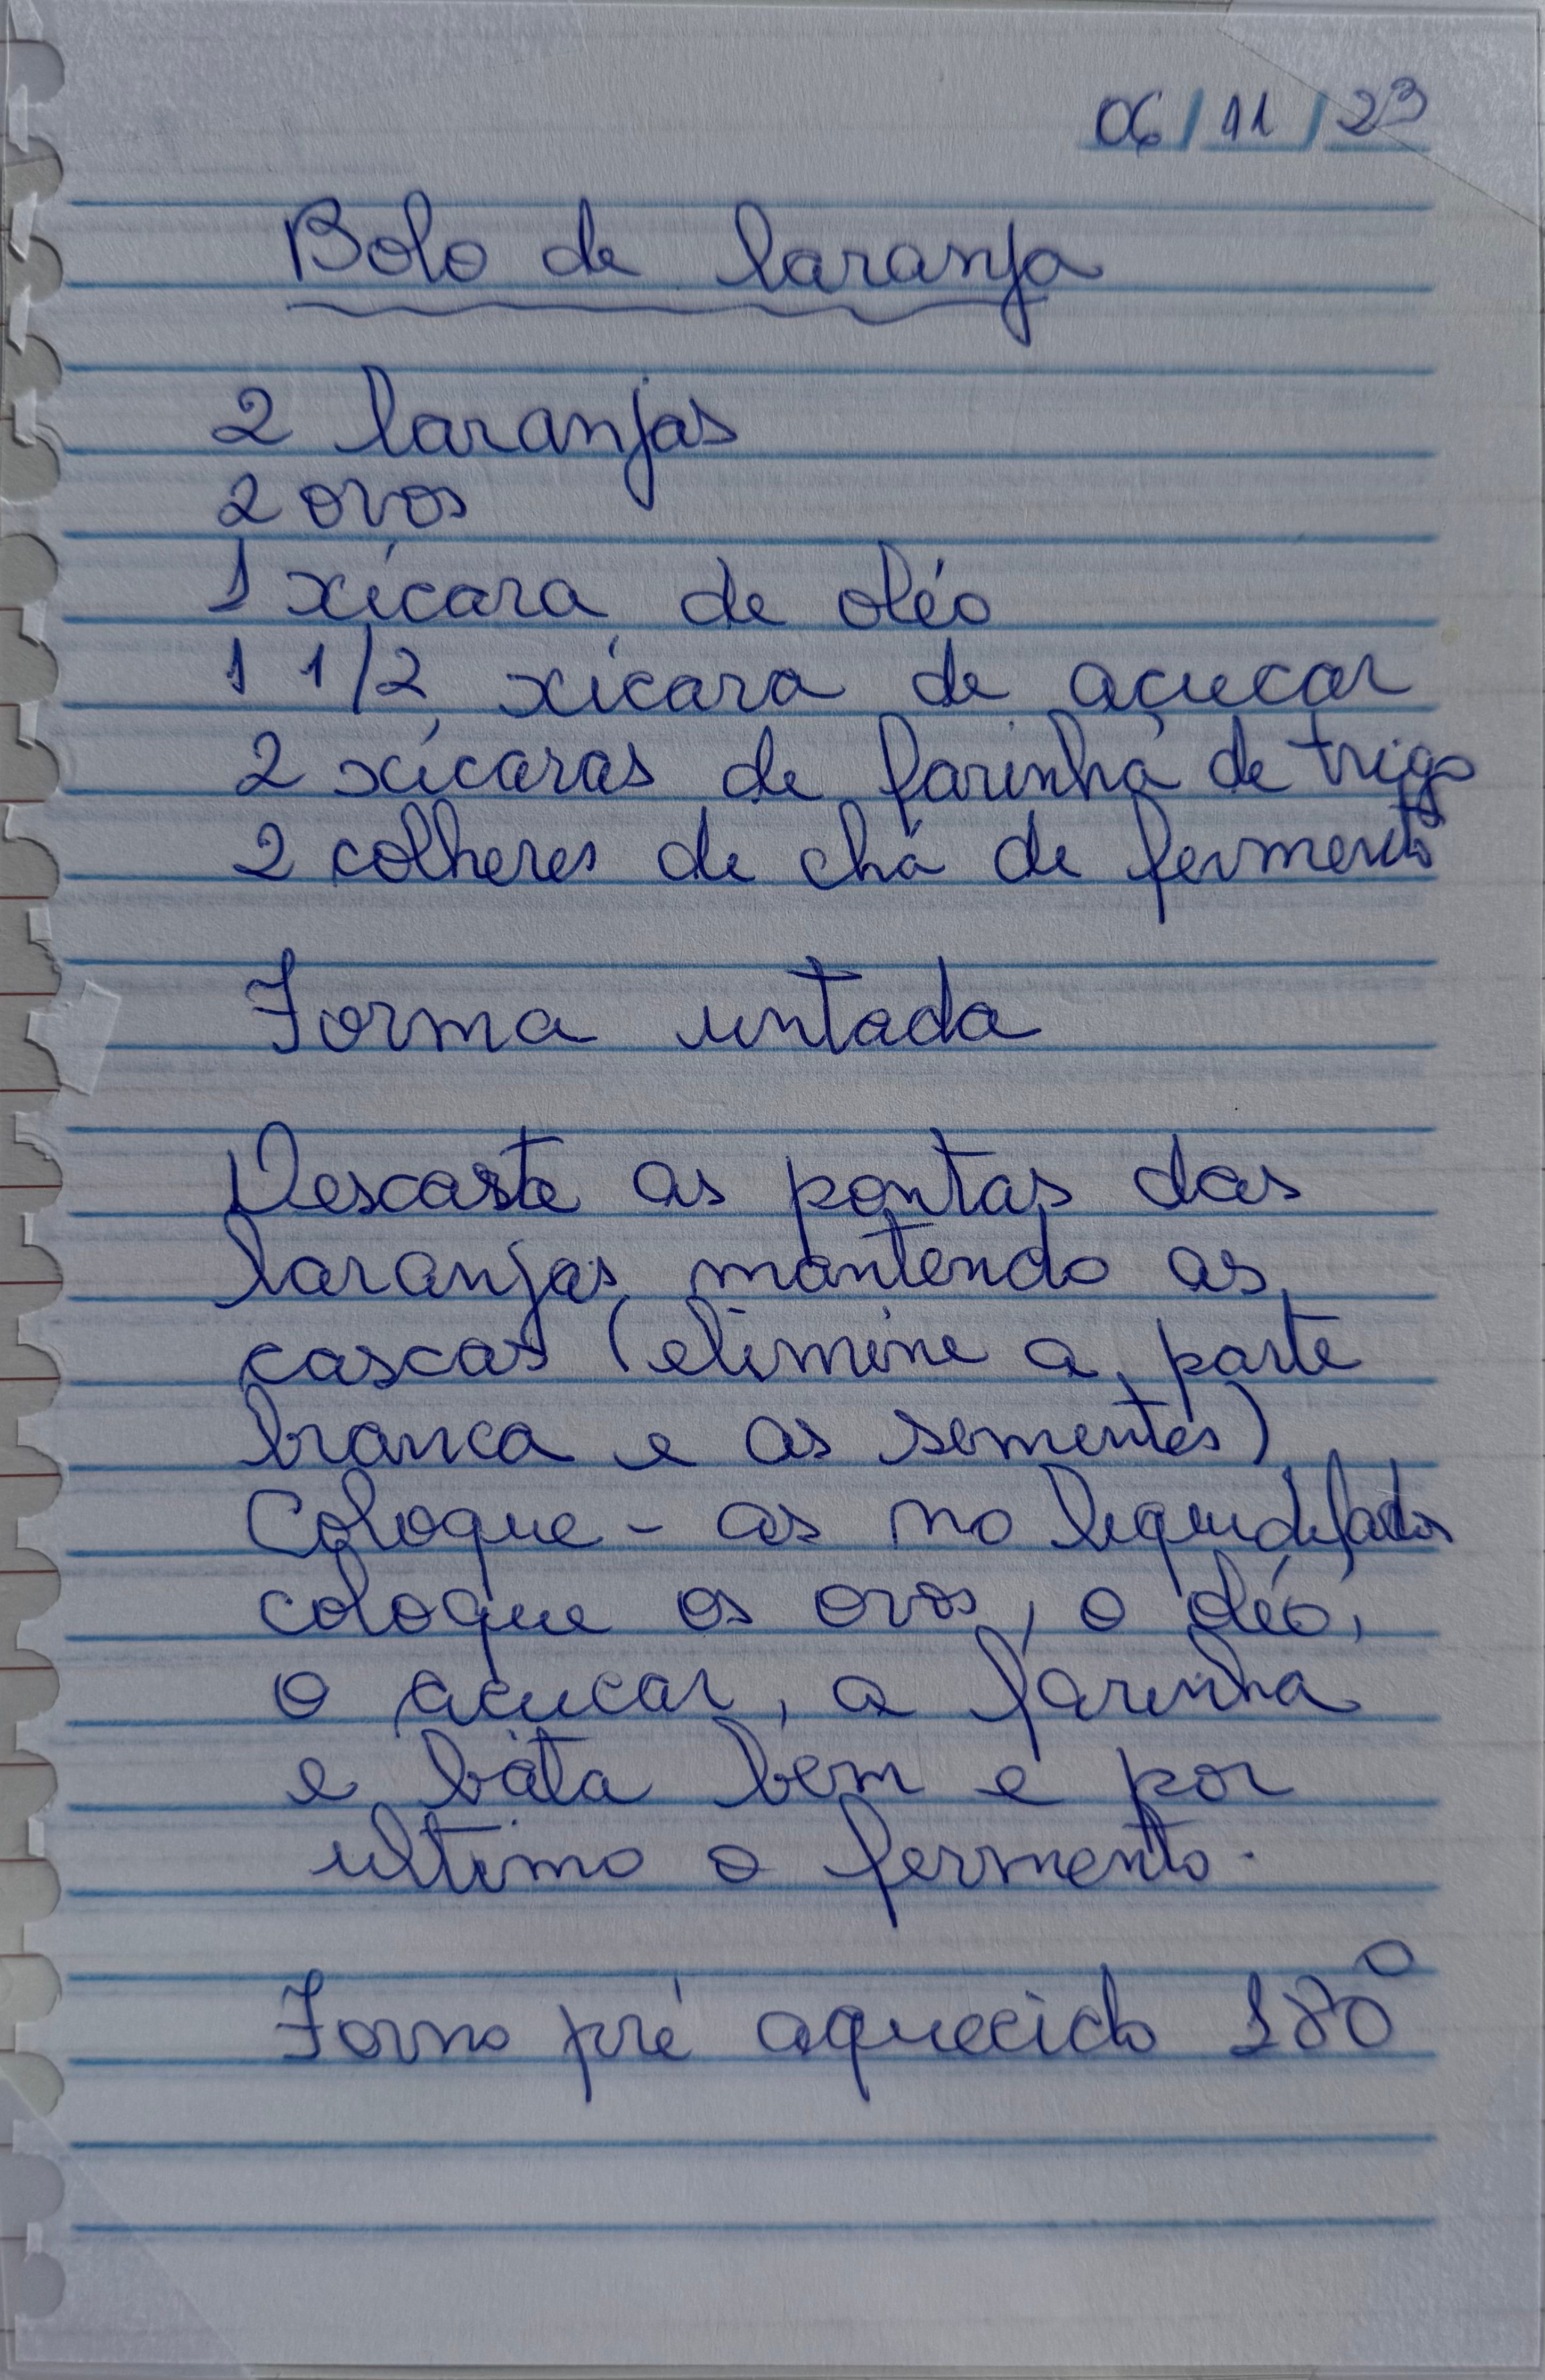 06/11/23
Bolo de laranja
2 laranjas
2 ovos
1 xícara de oléo
1 1/2 xícara de açucar
2 xícaras de farinha de trigo
2 colheres de chá de fermento
Forma untada
Descarte as pontas das
laranjas mantendo as
cascas (elimine a parte
branca e as sementes)
Coloque-as no liquidifador
coloque os ovos, o oléo,
o açucar, a farinha
e bata bem e por
ultimo o fermento.
Forno pré aquecido 180°